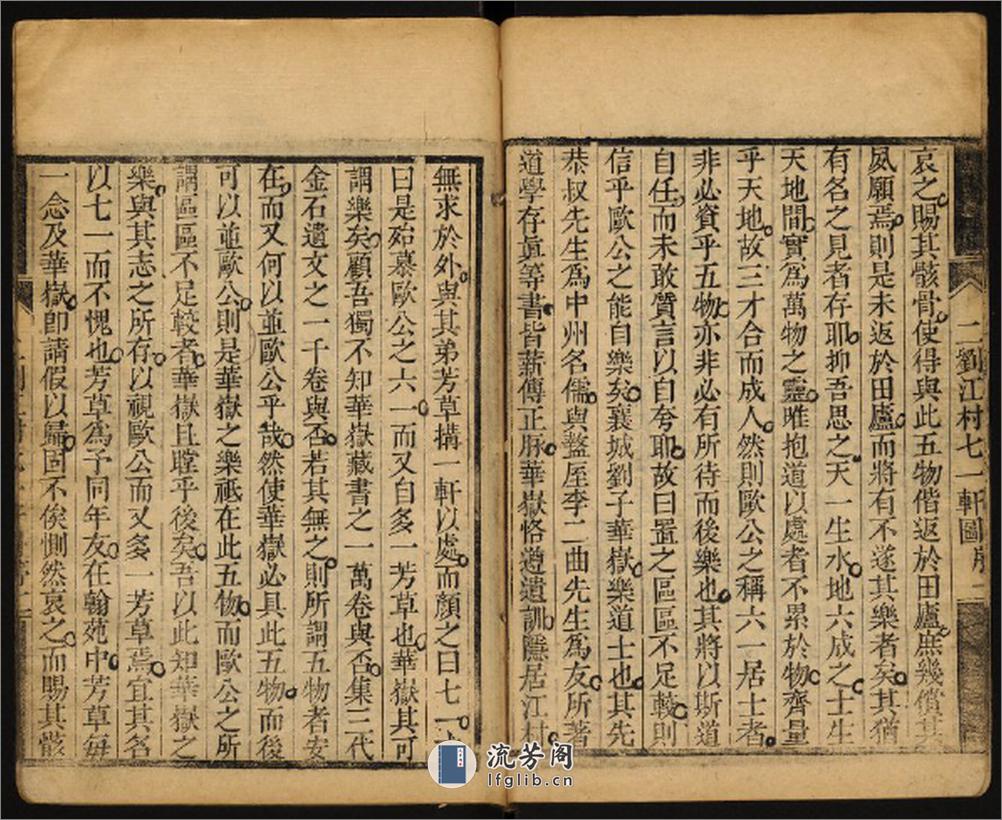 二劉江村七一軒圖序
哀之賜其骸骨使得與此五物偕返於田廬庶幾償其
夙願焉則是未返於田廬而將有不遂其樂者矣其猶
有名之見者存耶抑吾思之天一生水地六成之士生
天地間實爲萬物之靈唯抱道以處者不累於物齊量
乎天地故三才合而成人然則歐公之稱六一居士者
非必資乎五物亦非必有所待而後樂也其將以斯道
自任而未敢質言以自夸耶故曰置之區區不足較則
信乎歐公之能自樂矣襄城劉子華嶽樂道士也其先
恭叔先生爲中州名儒與盩厔李二曲先生爲友所著
道學存眞等書皆薪傳正脈華嶽恪遵遺訓隱居江村
無求於外與其弟芳草搆一軒以處而顏之曰七一
曰是殆慕歐公之六一而又自多一芳草也華嶽其可
謂樂矣顧吾獨不知華嶽藏書之一萬卷與否集三代
金石遺文之一千卷與否若其無之則所謂五物者安
在而又何以並歐公乎哉然使華嶽必具此五物而後
可以並歐公則是華嶽之樂祇在此五物而歐公之所
謂區區不足較者華嶽且瞠乎後矣吾以此知華嶽之
樂與其志之所存以視歐公而又多一芳草焉宜其名
以七一而不愧也芳草爲予同年友在翰苑中芳草每
一念及華嶽卽請假以歸固不俟惻然哀之而賜其骸
流芳阁
lfglib.cn